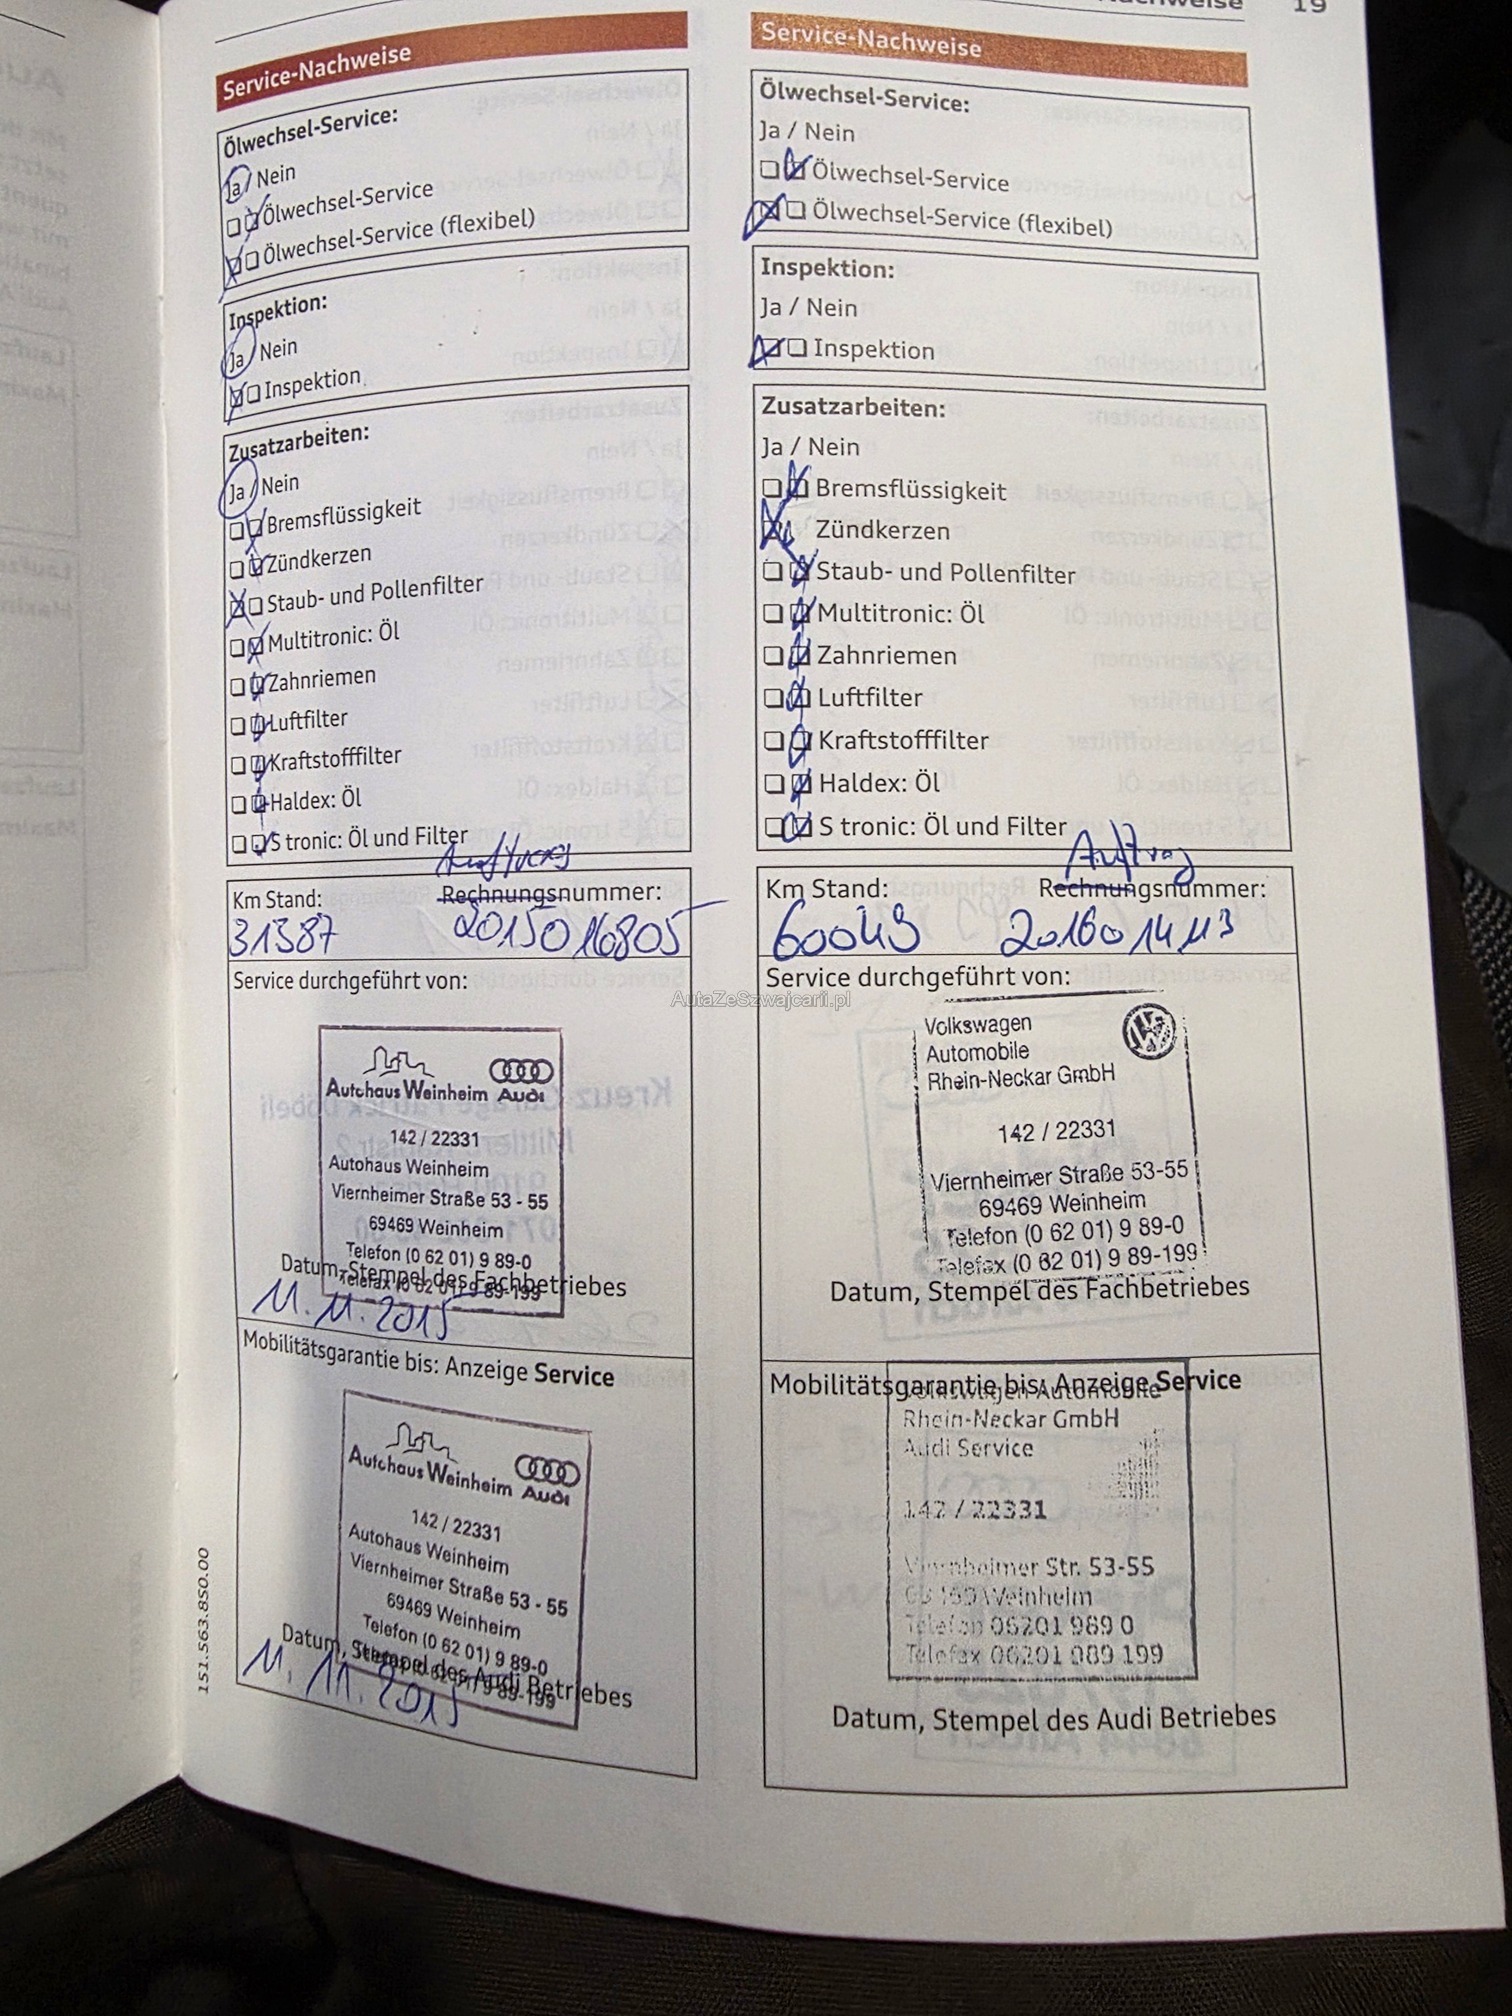 19
Service-Nachweise
Ölwechsel-Service:
Ja / Nein
Ölwechsel-Service
Ölwechsel-Service (flexibel)
Inspektion:
Ja / Nein
Inspektion
Zusatzarbeiten:
Ja / Nein
Bremsflüssigkeit
Zündkerzen
Staub- und Pollenfilter
Multitronic: Öl
Zahnriemen
Luftfilter
Kraftstofffilter
Haldex: Öl
S tronic: Öl und Filter
Auftrag
Km Stand: Rechnungsnummer:
31387 2015016805
Service durchgeführt von:
Autohaus Weinheim Audi
142 / 22331
Autohaus Weinheim
Viernheimer Straße 53 - 55
69469 Weinheim
Telefon (0 62 01) 9 89-0
Telefax (0 62 01) 9 89-199
Datum, Stempel des Fachbetriebes
11.11.2015
Mobilitätsgarantie bis: Anzeige Service
Autohaus Weinheim Audi
142 / 22331
Autohaus Weinheim
Viernheimer Straße 53 - 55
69469 Weinheim
Telefon (0 62 01) 9 89-0
Telefax (0 62 01) 9 89-199
Datum, Stempel des Audi Betriebes
11.11.2015
151.563.850.00
Service-Nachweise
Ölwechsel-Service:
Ja / Nein
Ölwechsel-Service
Ölwechsel-Service (flexibel)
Inspektion:
Ja / Nein
Inspektion
Zusatzarbeiten:
Ja / Nein
Bremsflüssigkeit
Zündkerzen
Staub- und Pollenfilter
Multitronic: Öl
Zahnriemen
Luftfilter
Kraftstofffilter
Haldex: Öl
S tronic: Öl und Filter
Auftrag
Km Stand: Rechnungsnummer:
60049
Service durchgeführt von:
Volkswagen
Automobile
Rhein-Neckar GmbH
142 / 22331
Viernheimer Straße 53-55
69469 Weinheim
Telefon (0 62 01) 9 89-0
Telefax (0 62 01) 9 89-199
Datum, Stempel des Fachbetriebes
Mobilitätsgarantie bis: Anzeige Service
Volkswagen Automobile
Rhein-Neckar GmbH
Audi Service
142 / 22331
Viernheimer Str. 53-55
69469 Weinheim
Telefon 06201 989 0
Telefax 06201 989 199
Datum, Stempel des Audi Betriebes
AutaZeSzwajcarii.pl